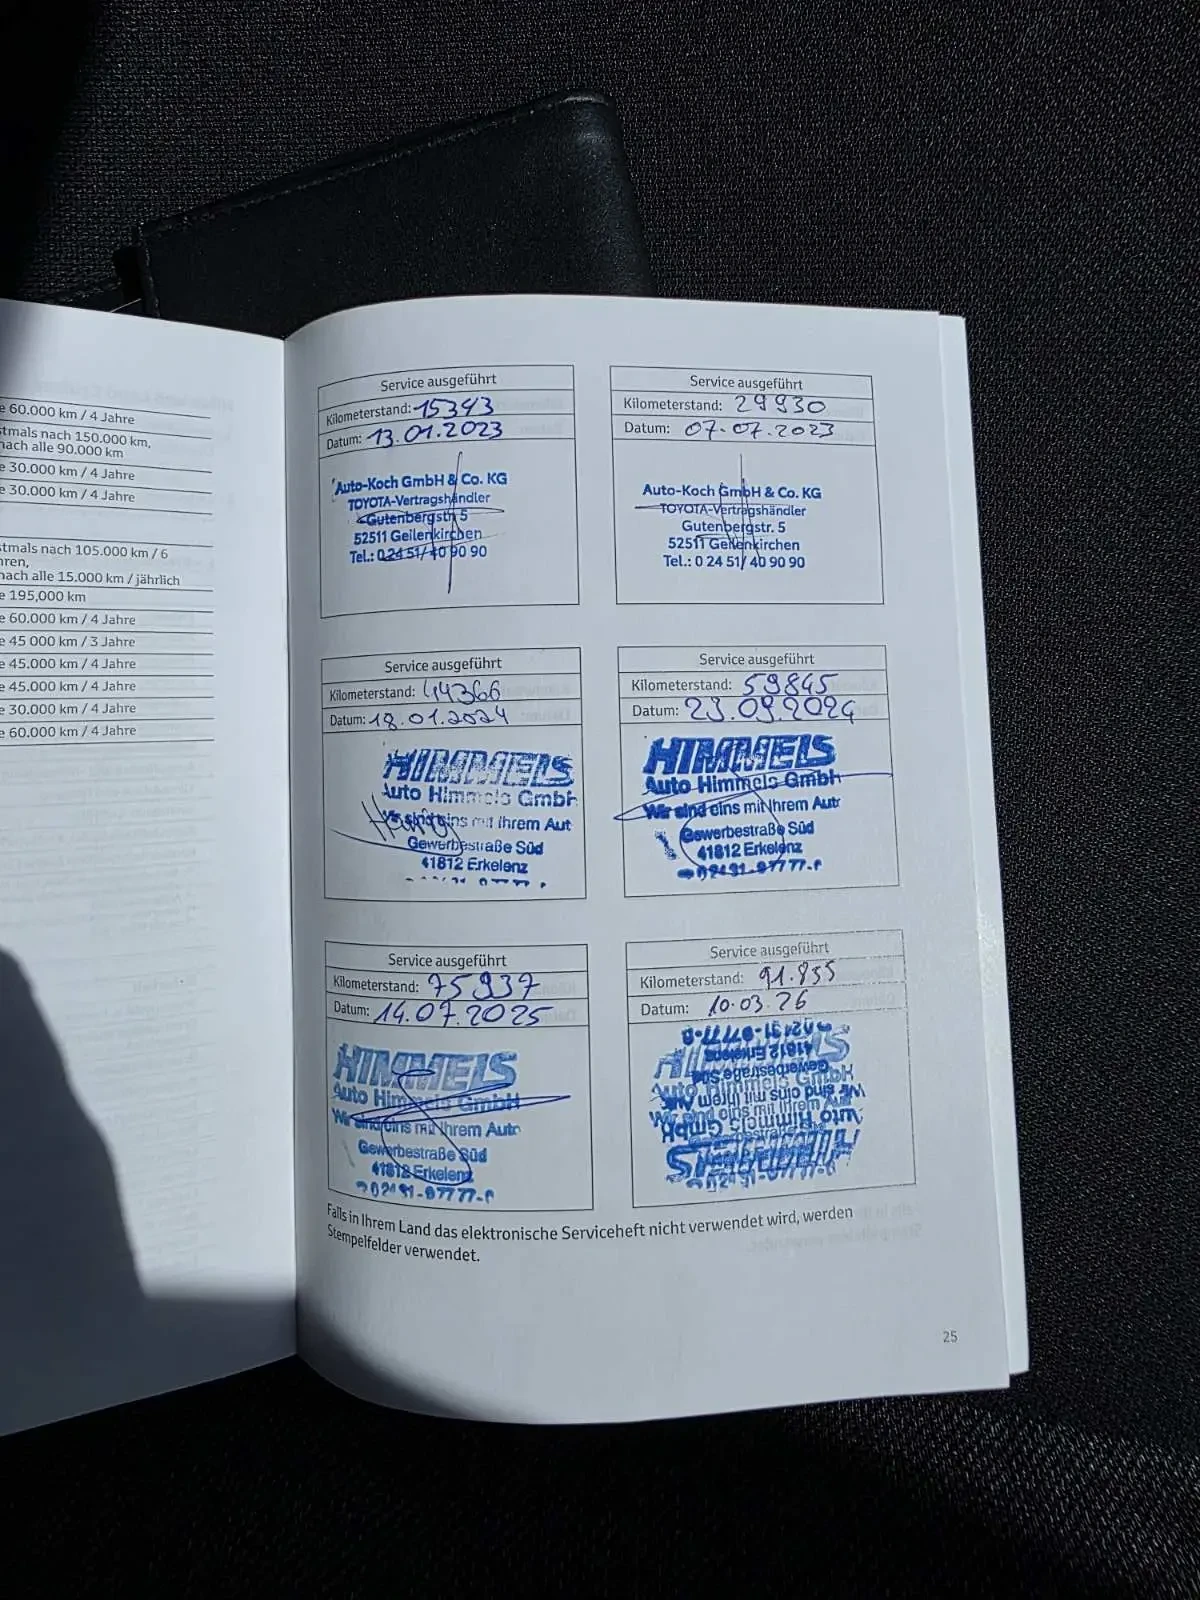 e 60.000 km / 4 Jahre
tmals nach 150.000 km,
nach alle 90.000 km
e 30.000 km / 4 Jahre
e 30.000 km / 4 Jahre
tmals nach 105.000 km / 6
hren,
nach alle 15.000 km / jährlich
e 195,000 km
e 60.000 km / 4 Jahre
e 45 000 km / 3 Jahre
e 45.000 km / 4 Jahre
e 45.000 km / 4 Jahre
e 30.000 km / 4 Jahre
e 60.000 km / 4 Jahre
Service ausgeführt
Kilometerstand: 15343
Datum: 13.01.2023
Auto-Koch GmbH & Co. KG
TOYOTA-Vertragshändler
Gutenbergstr. 5
52511 Geilenkirchen
Tel.: 0 24 51/ 40 90 90
Service ausgeführt
Kilometerstand: 29930
Datum: 07.07.2023
Auto-Koch GmbH & Co. KG
TOYOTA-Vertragshändler
Gutenbergstr. 5
52511 Geilenkirchen
Tel.: 0 24 51/ 40 90 90
Service ausgeführt
Kilometerstand: 44366
Datum: 18.01.2024
HIMMELS
Auto Himmels GmbH
Wir sind eins mit Ihrem Aut
Gewerbestraße Süd
41812 Erkelenz
Service ausgeführt
Kilometerstand: 59845
Datum: 23.09.2024
HIMMELS
Auto Himmels Gmbh
Wir sind eins mit Ihrem Aut
Gewerbestraße Süd
41812 Erkelenz
02431-97777-0
Service ausgeführt
Kilometerstand: 75937
Datum: 14.07.2025
HIMMELS
Auto Himmels GmbH
Wir sind eins mit Ihrem Auto
Gewerbestraße Süd
41812 Erkelenz
02431-97777-0
Service ausgeführt
Kilometerstand: 91.835
Datum: 10.03.26
02431-97777-0
41812 Erkelenz
Gewerbestraße Süd
Auto Himmels GmbH
Wir sind eins mit Ihrem Aut
Auto Himmels GmbH
HIMMELS
Falls in Ihrem Land das elektronische Serviceheft nicht verwendet wird, werden
Stempelfelder verwendet.
25